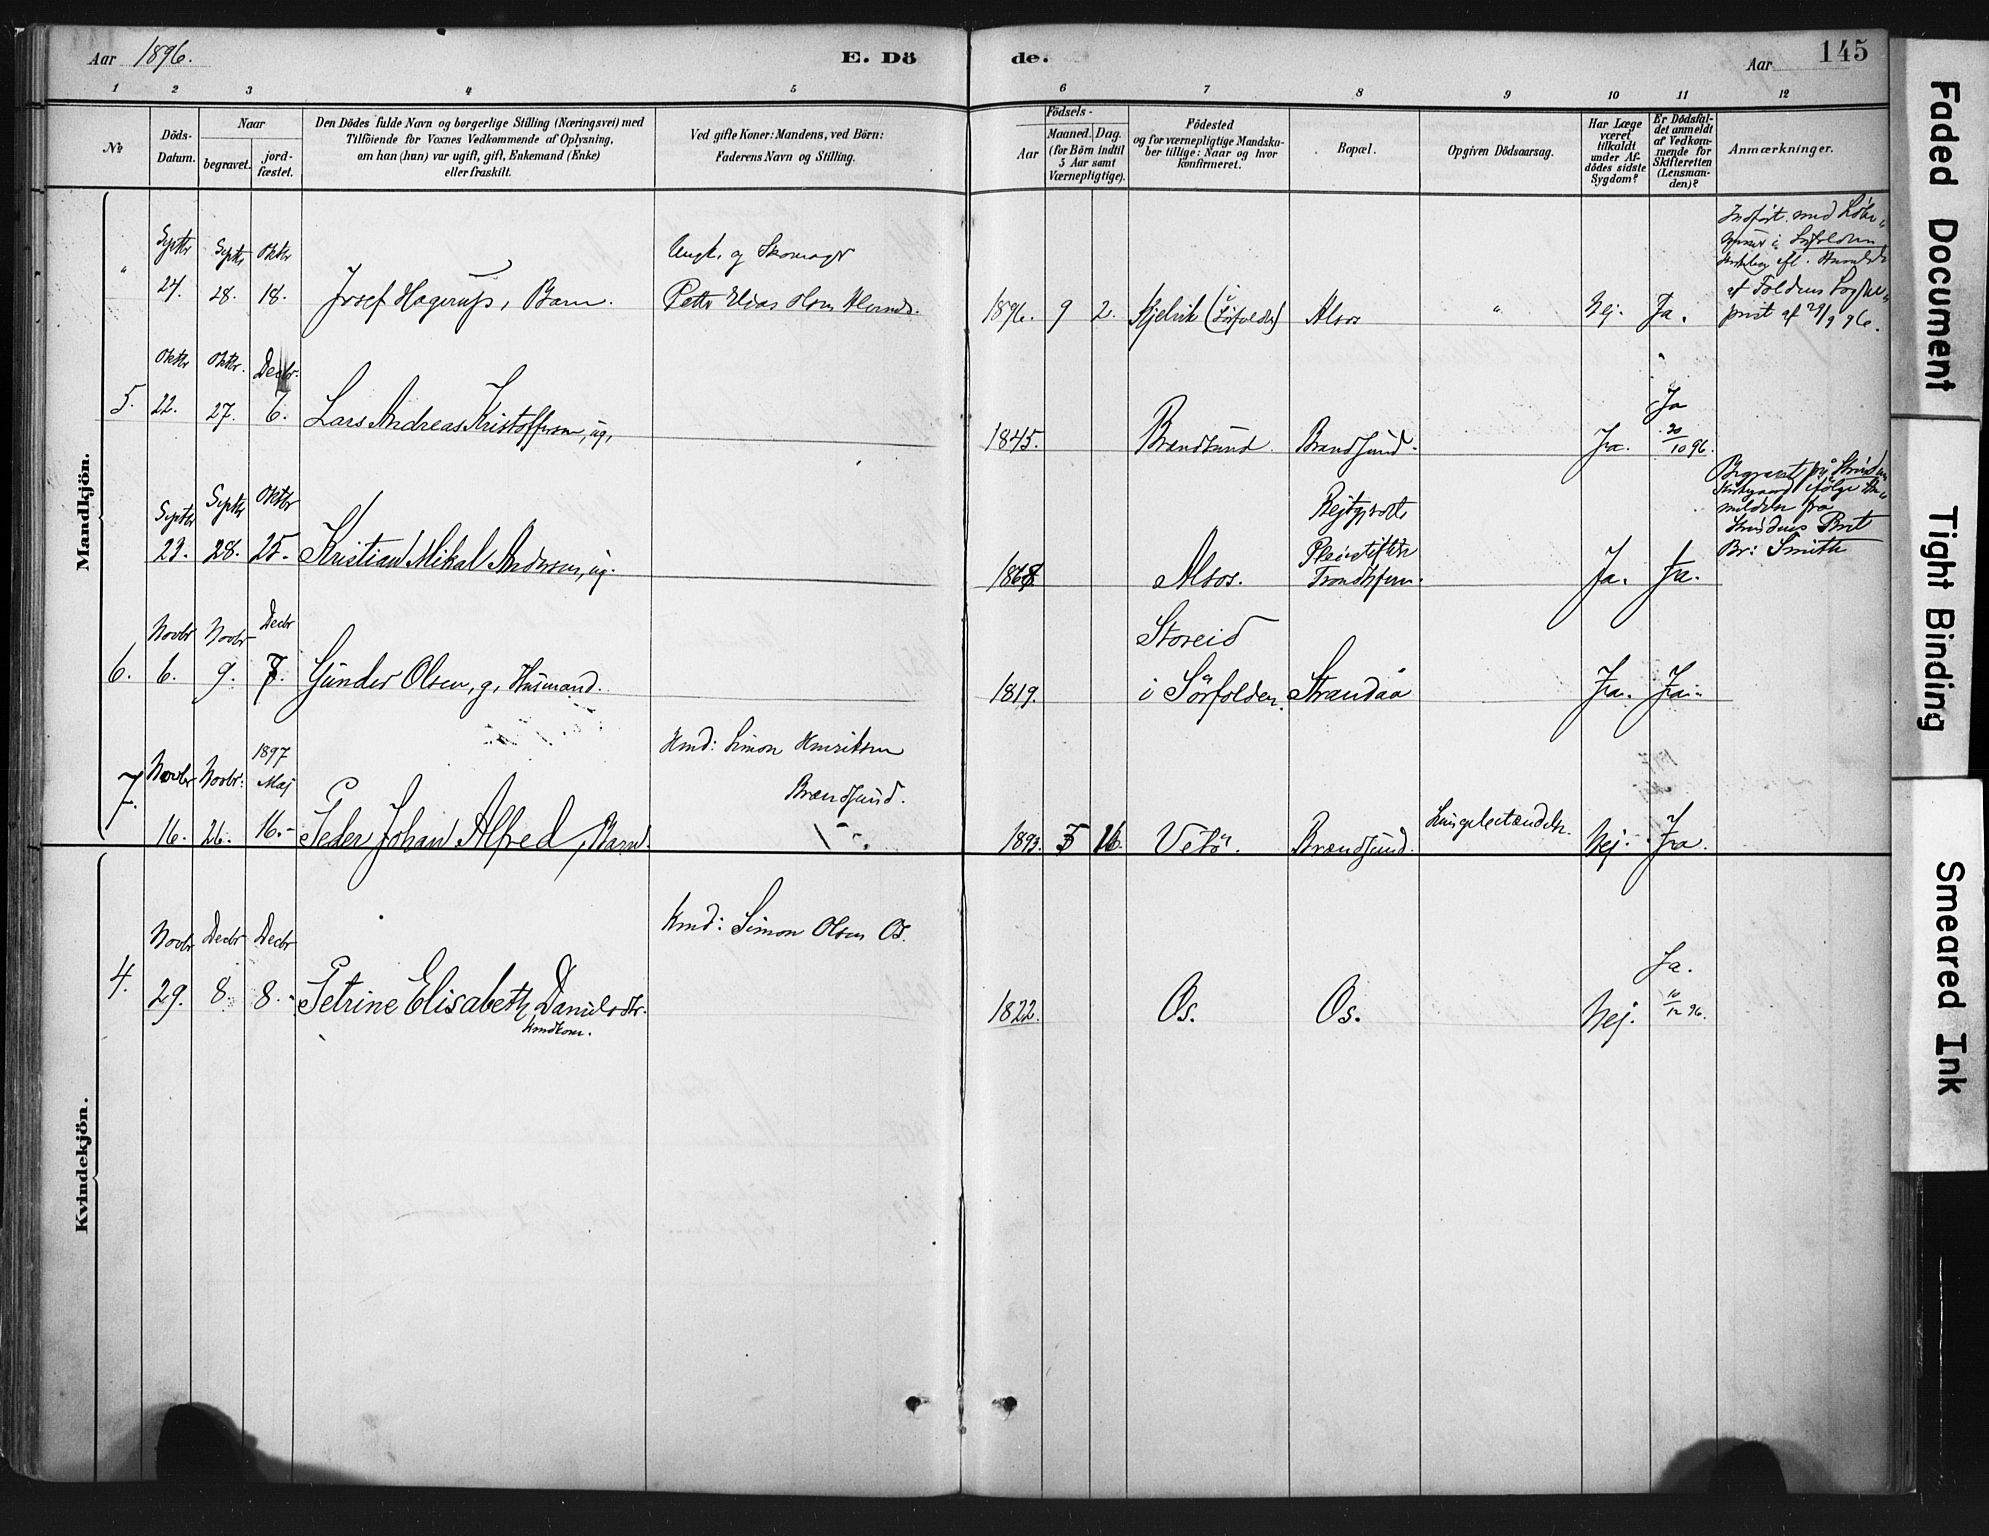 Aar 1896.
E. Dö
de.
Aar
145
1 2 3 4 5 6 7 8 9 10 11 12
№
Döds-
Datum.
Naar
begravet.
jord-
fæstet.
Den Dödes fulde Navn og borgerlige Stilling (Næringsvei) med
Tilföiende for Voxnes Vedkommende af Oplysning,
om han (hun) var ugift, gift, Enkemand (Enke)
eller fraskilt.
Ved gifte Koner: Mandens, ved Börn:
Faderens Navn og Stilling.
Födsels-
Aar
Maaned. Dag.
(for Börn indtil
5 Aar samt
Værnepligtige).
Födested
og for værnepligtige Mandska-
ber tillige: Naar og hvor
konfirmeret.
Bopæl.
Opgiven Dödsaarsag.
Har Læge
været
tilkaldt
under Af-
dödes sidste
Sygdom?
Er Dödsfal-
det anmeldt
af Vedkom-
mende for
Skifteretten
(Lensman-
den)?
Anmærkninger.
Mandkjön.
"
Septbr Septbr Oktbr
24. 28. 18.
Josef Hagerup, Barn.
Ungk. og Skomager
Peder Elias Olsen
1896. 9 2. Kjelvik (Sörfolden) Alsos " Nej. Ja.
i Sörfolden
af Foldens Sogne-
prest af
5.
Oktbr Oktbr. Decbr.
22. 27. 7.
Lars Andreas Kristoffersen, ug.
1845. Brændsund. Brændsund. Ja. Ja
20/10 96.
Septbr Septbr Oktbr
23. 28. 25.
Kristian Mikal Andersen, ug.
1868 Alsos.
Pleiestiftelse
Trondhjem.
Ja. Ja.
Begravet på Strinden
Kirkegaard ifølge An-
meldelse fra
Strindens Prest
Br: Smith
6.
Novbr Novbr Decbr
6. 9. 7.
Gunder Olsen, g. Husmand.
1819.
Storeid
i Sörfolden.
Strandaa Ja. Ja.
7.
Novbr Novbr: 1897
Maj
16. 26. 16.
Peder Johan Alfred, Barn.
Hmd: Simon Henriksen
Brændsund.
1893. 5 16. Vetö. Brændsund. Lungebetændelse. Nej. Ja.
Kvindekjön.
4.
Novbr Decbr Decbr
29. 8. 8.
Petrine Elisabeth Danielsdtr.
Kmd: Simon Olsen Os.
1822. Os. Os. Nej.
Ja.
10/12 96.
Faded Document
Tight Binding
Smeared Ink